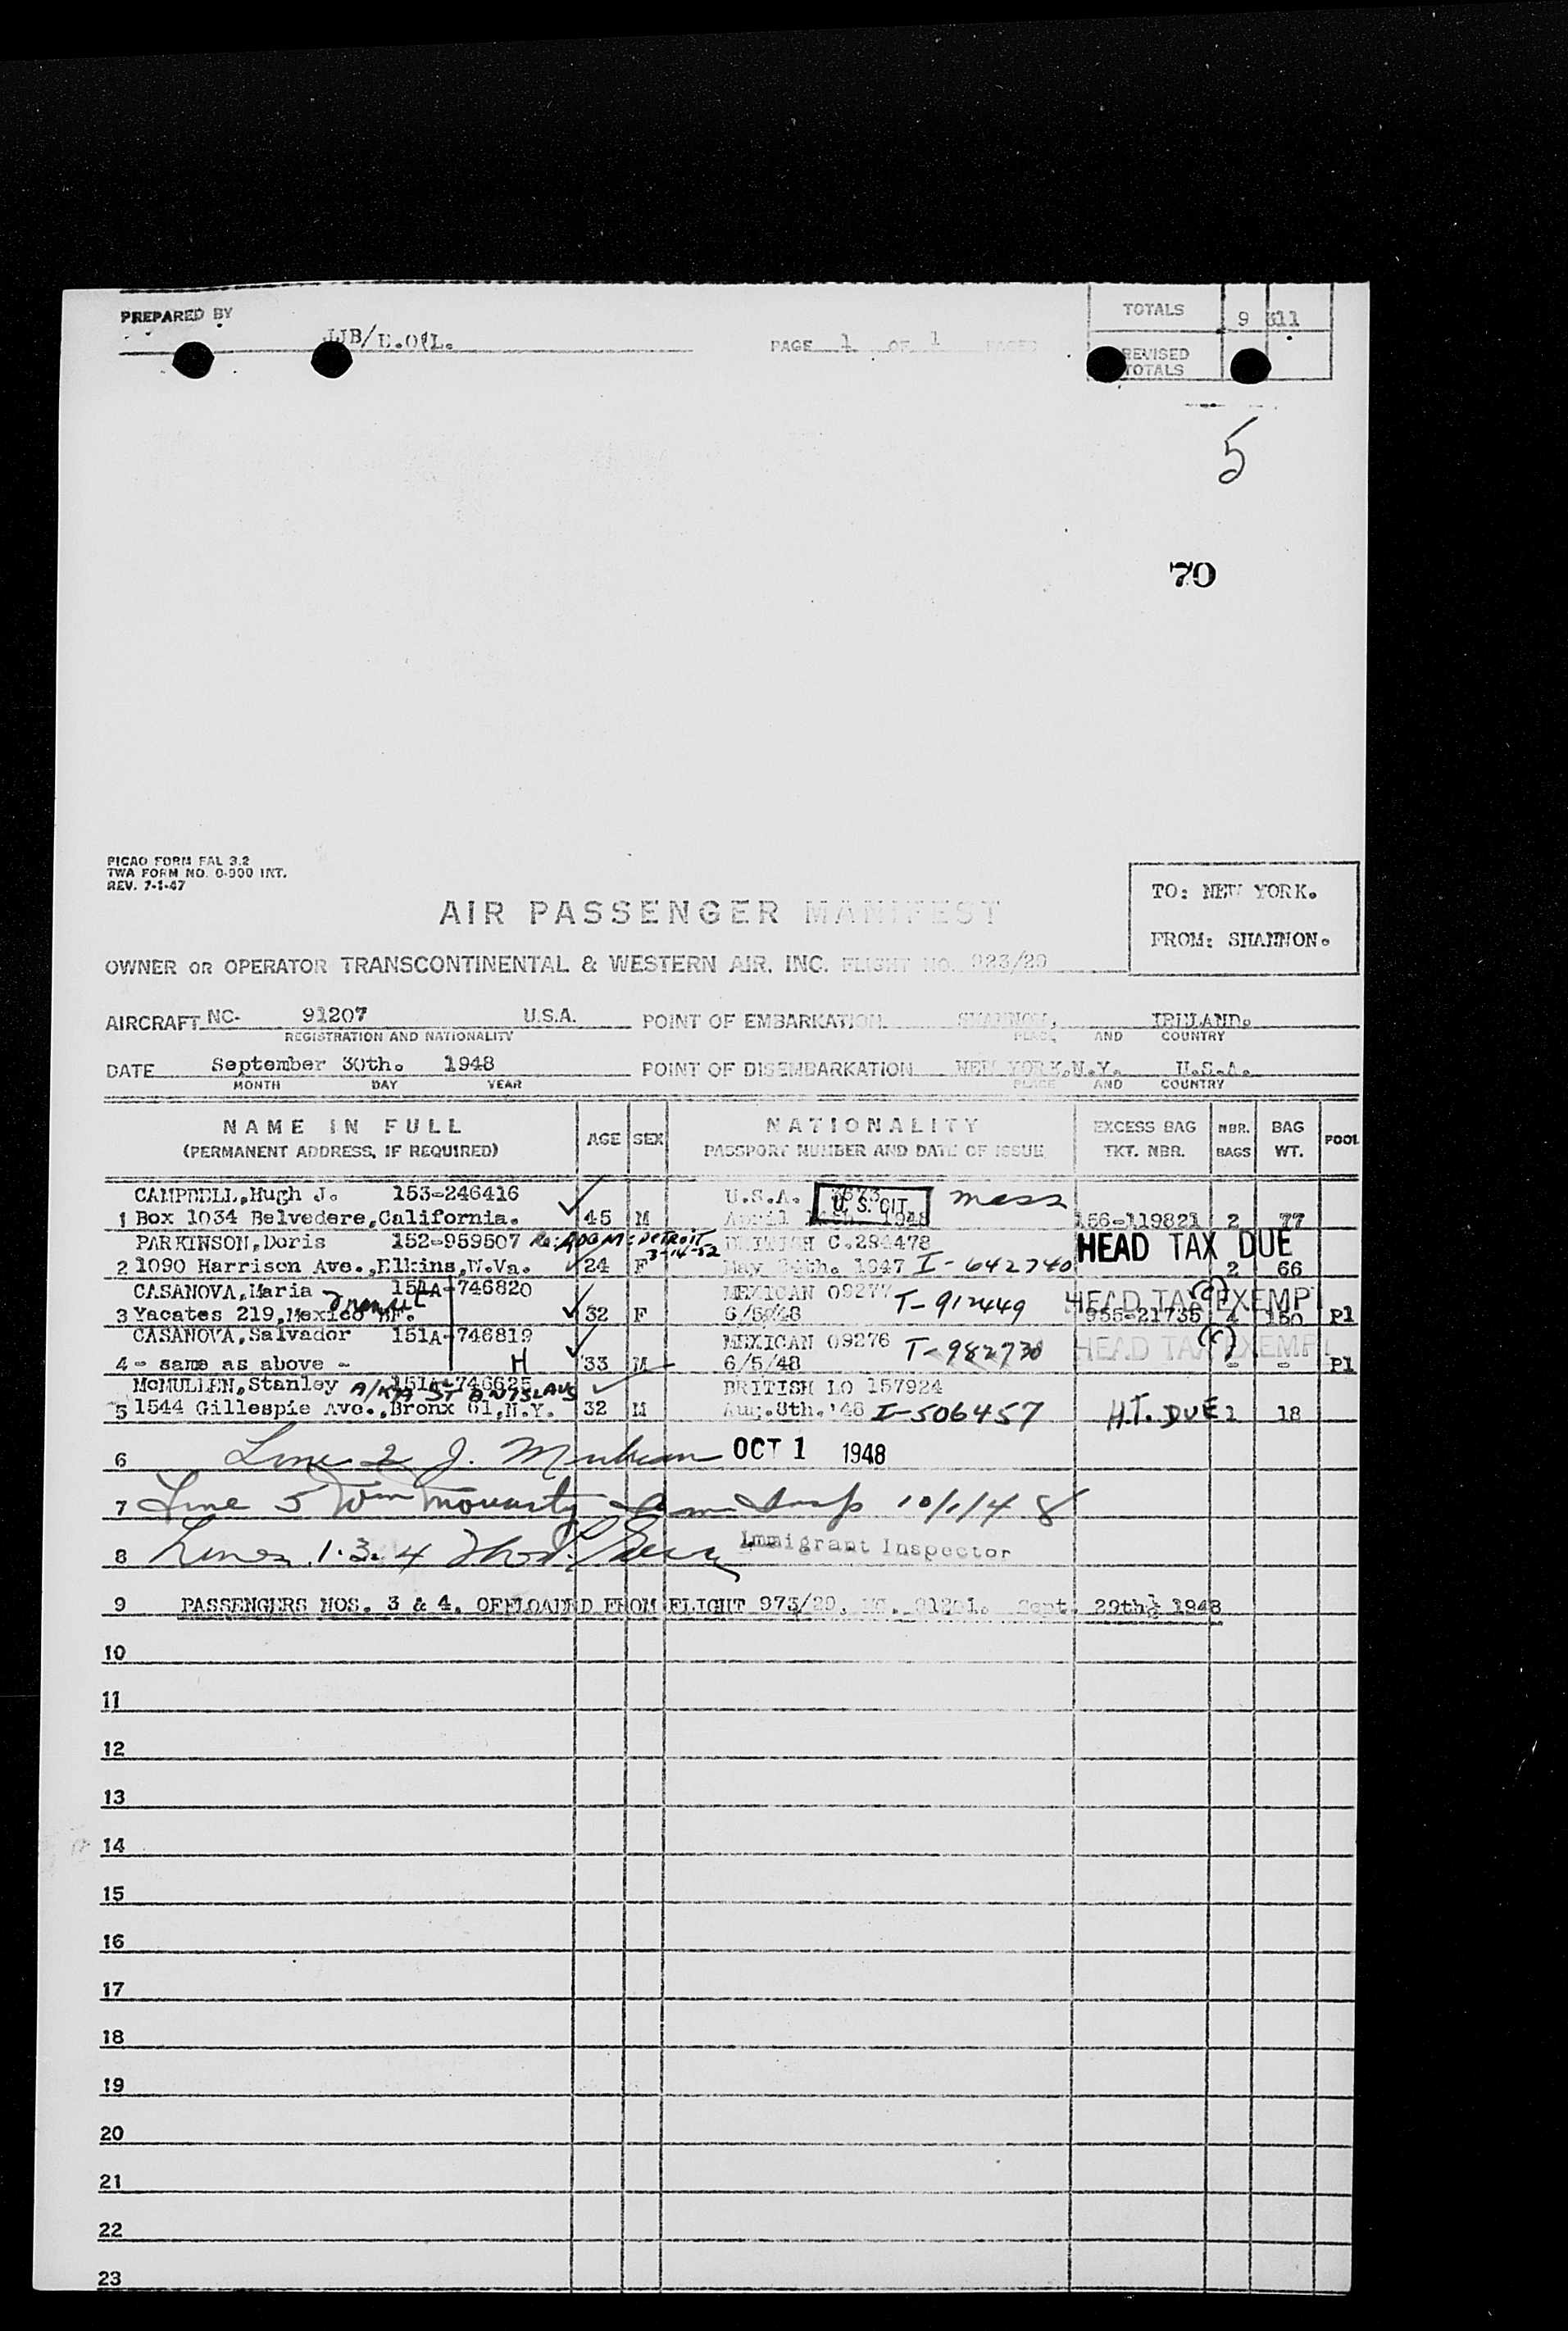 PREPARED BY
JJB/E.O'L.
PAGE 1 OF 1 PAGES
TOTALS 9 311
REVISED TOTALS
5
70
PICAO FORM FAL 3.2
TWA FORM NO. 0-900 INT.
REV. 7-1-47
AIR PASSENGER MANIFEST
TO: NEW YORK.
FROM: SHANNON.
OWNER OR OPERATOR TRANSCONTINENTAL & WESTERN AIR, INC. FLIGHT NO. 923/29
AIRCRAFT NC- 91207 U.S.A. POINT OF EMBARKATION SHANNON, IRELAND.
REGISTRATION AND NATIONALITY PLACE AND COUNTRY
DATE September 30th. 1948 POINT OF DISEMBARKATION NEW YORK,N.Y. U.S.A.
MONTH DAY YEAR PLACE AND COUNTRY
NAME IN FULL AGE SEX NATIONALITY EXCESS BAG NBR. BAG POOL
(PERMANENT ADDRESS, IF REQUIRED) PASSPORT NUMBER AND DATE OF ISSUE TKT. NBR. BAGS WT.
CAMPBELL,Hugh J. 153-246416 U.S.A. U. S. CIT
1 Box 1034 Belvedere,California. 45 M April 1948 156-119821 2 77
PARKINSON,Doris 152-959507 Re: ADDM: DETROIT 3-14-52 BRITISH C.284478 HEAD TAX DUE
2 1090 Harrison Ave.,Elkins,W.Va. 24 F May 24th. 1947 I-642740 2 66
CASANOVA,Maria 151A-746820 MEXICAN 09277 T-912449 HEAD TAX EXEMP (c)
3 Yacates 219,Mexico DF. Transit 32 F 6/5/48 956-21735 4 150 Pl
CASANOVA,Salvador 151A-746819 MEXICAN 09276 T-982730 HEAD TAX EXEMP (c)
4 - same as above - H 33 M 6/5/48 - - Pl
McMULLEN,Stanley 151A-746625 A/K/A STANISLAUS BRITISH LO 157924
5 1544 Gillespie Ave.,Bronx 61,N.Y. 32 M Aug.8th.'48 I-506457 H.T. DUE 1 18
6 Line 2 J. OCT 1 1948
7 Line 5 Wm Moriarty Imm Insp 10/1/48
8 Lines 1.3.4 Immigrant Inspector
9 PASSENGERS NOS. 3 & 4, OFFLOADED FROM FLIGHT 973/29, Sept. 29th, 1948
10
11
12
13
14
15
16
17
18
19
20
21
22
23